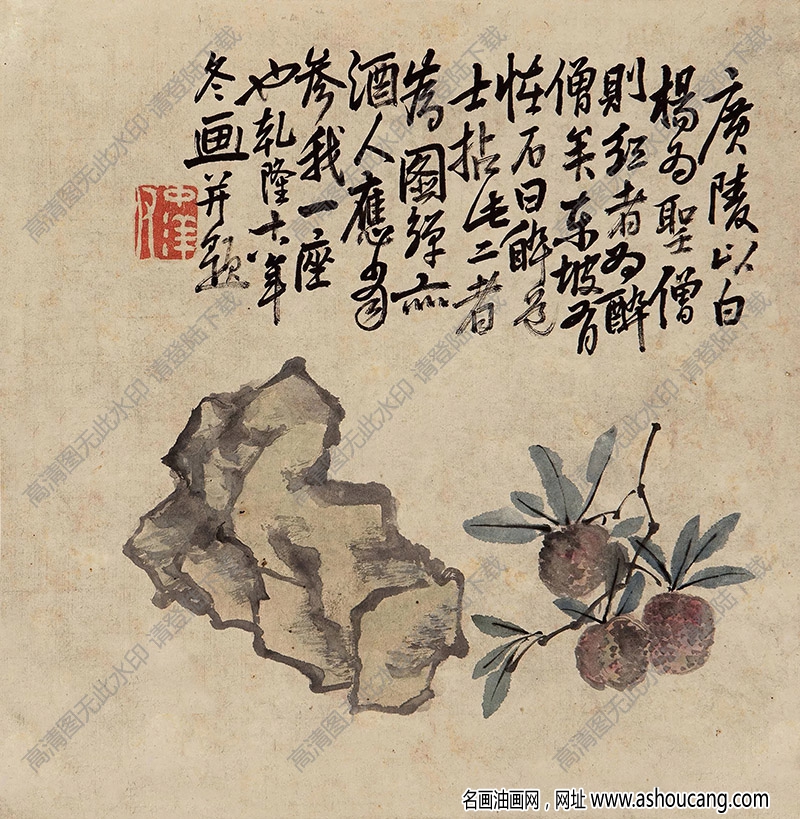 廣陵以白
楊为聖僧
則紅者为醉
僧矣東坡有
怪石曰醉道
士拈此二者
為圖
酒人應
參我一座
也乾隆年
冬画并題
中洋
高清图无此水印 请登陆下载
名画油画网，网址 www.ashoucang.com